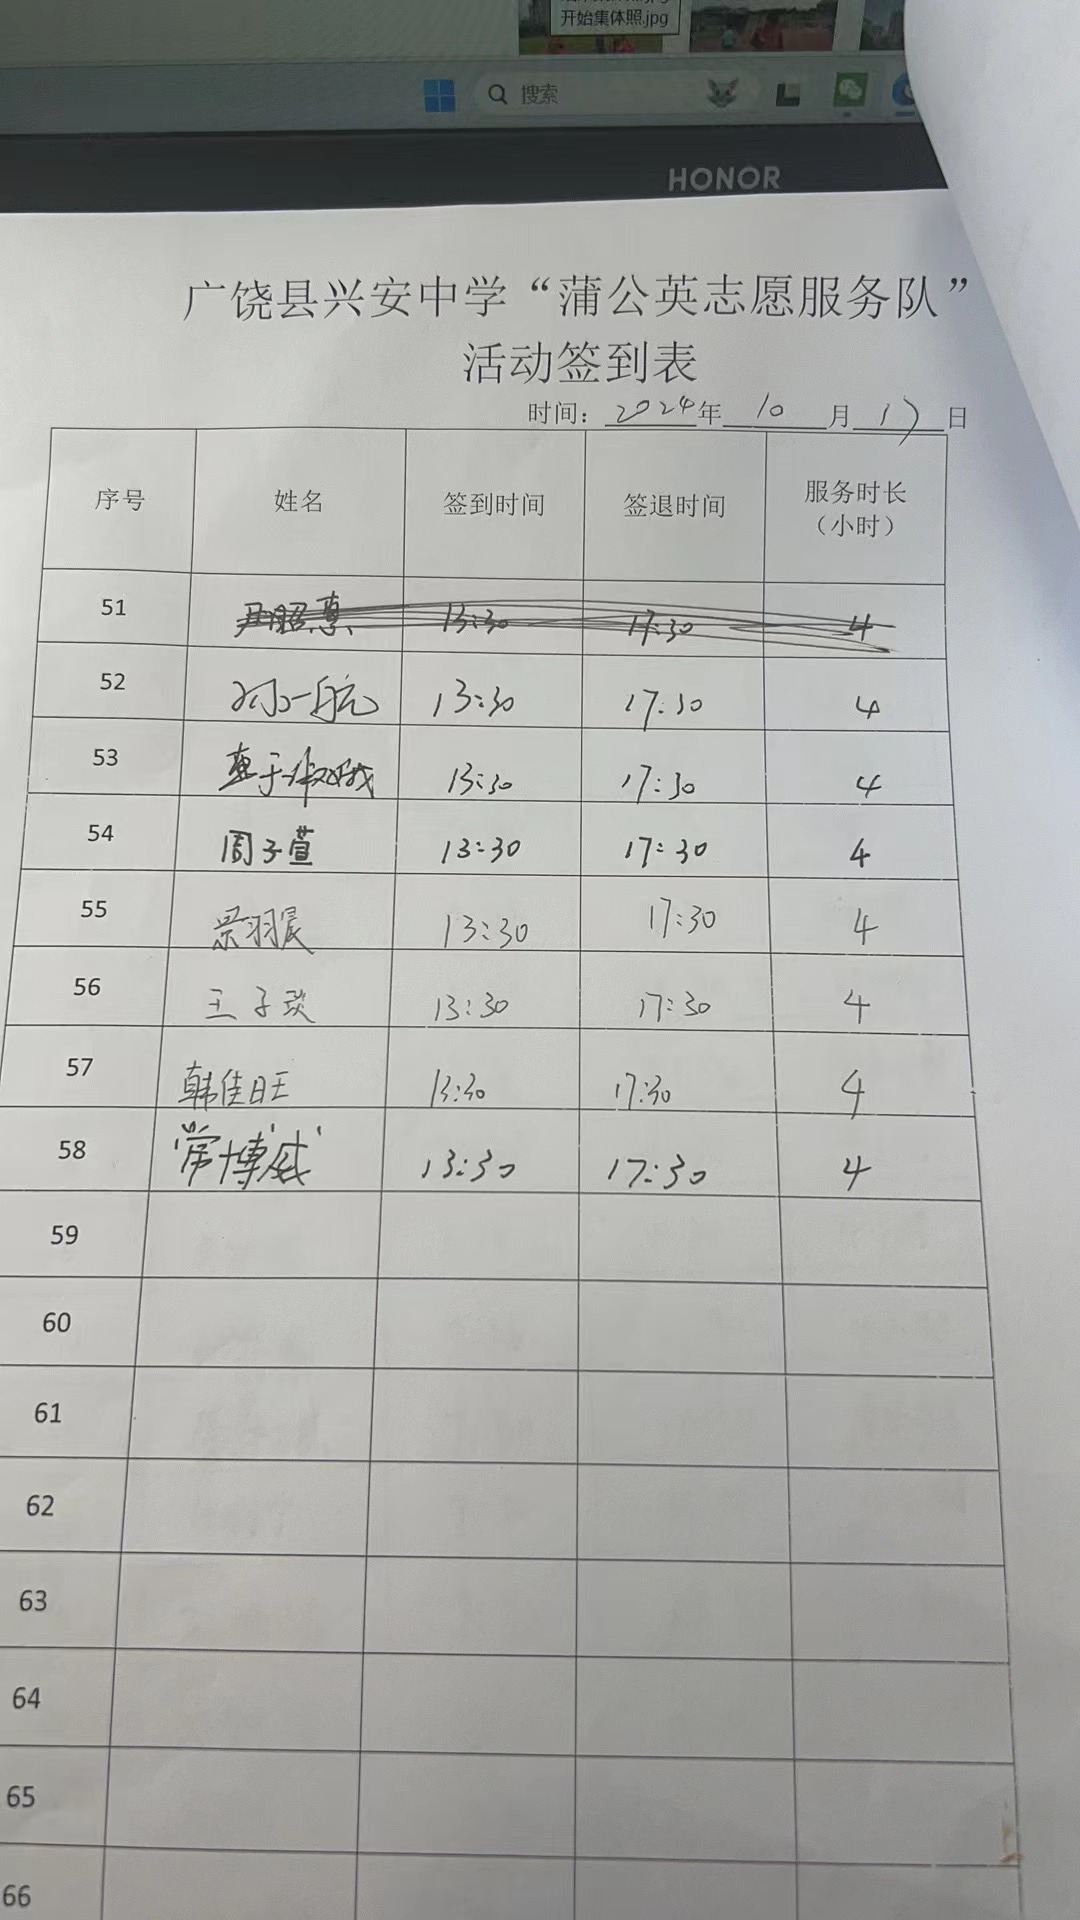 开始集体照.jpg
搜索
HONOR
广饶县兴安中学“蒲公英志愿服务队”
活动签到表
时间：2024年 10 月 17 日
序号 姓名 签到时间 签退时间 服务时长（小时）
51 尹昭惠 13:30 17:30 4
52 孙一航 13:30 17:30 4
53 13:30 17:30 4
54 周子萱 13:30 17:30 4
55 景羽晨 13:30 17:30 4
56 王子琰 13:30 17:30 4
57 韩佳旺 13:30 17:30 4
58 常博威 13:30 17:30 4
59
60
61
62
63
64
65
66